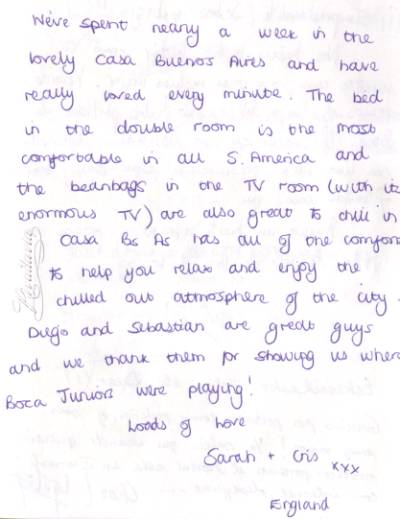 We've spent nearly a week in the
lovely Casa Buenos Aires and have
really loved every minute. The bed
in the double room is the most
comfortable in all S. America and
the beanbags in the TV room (with its
enormous TV) are also great to chill in
Casa Bs As has all of the comfort
to help you relax and enjoy the
chilled out atmosphere of the city.
Diego and Sebastian are great guys
and we thank them for showing us where
Boca Juniors were playing!
Loads of love
Sarah + Cris xxx
England